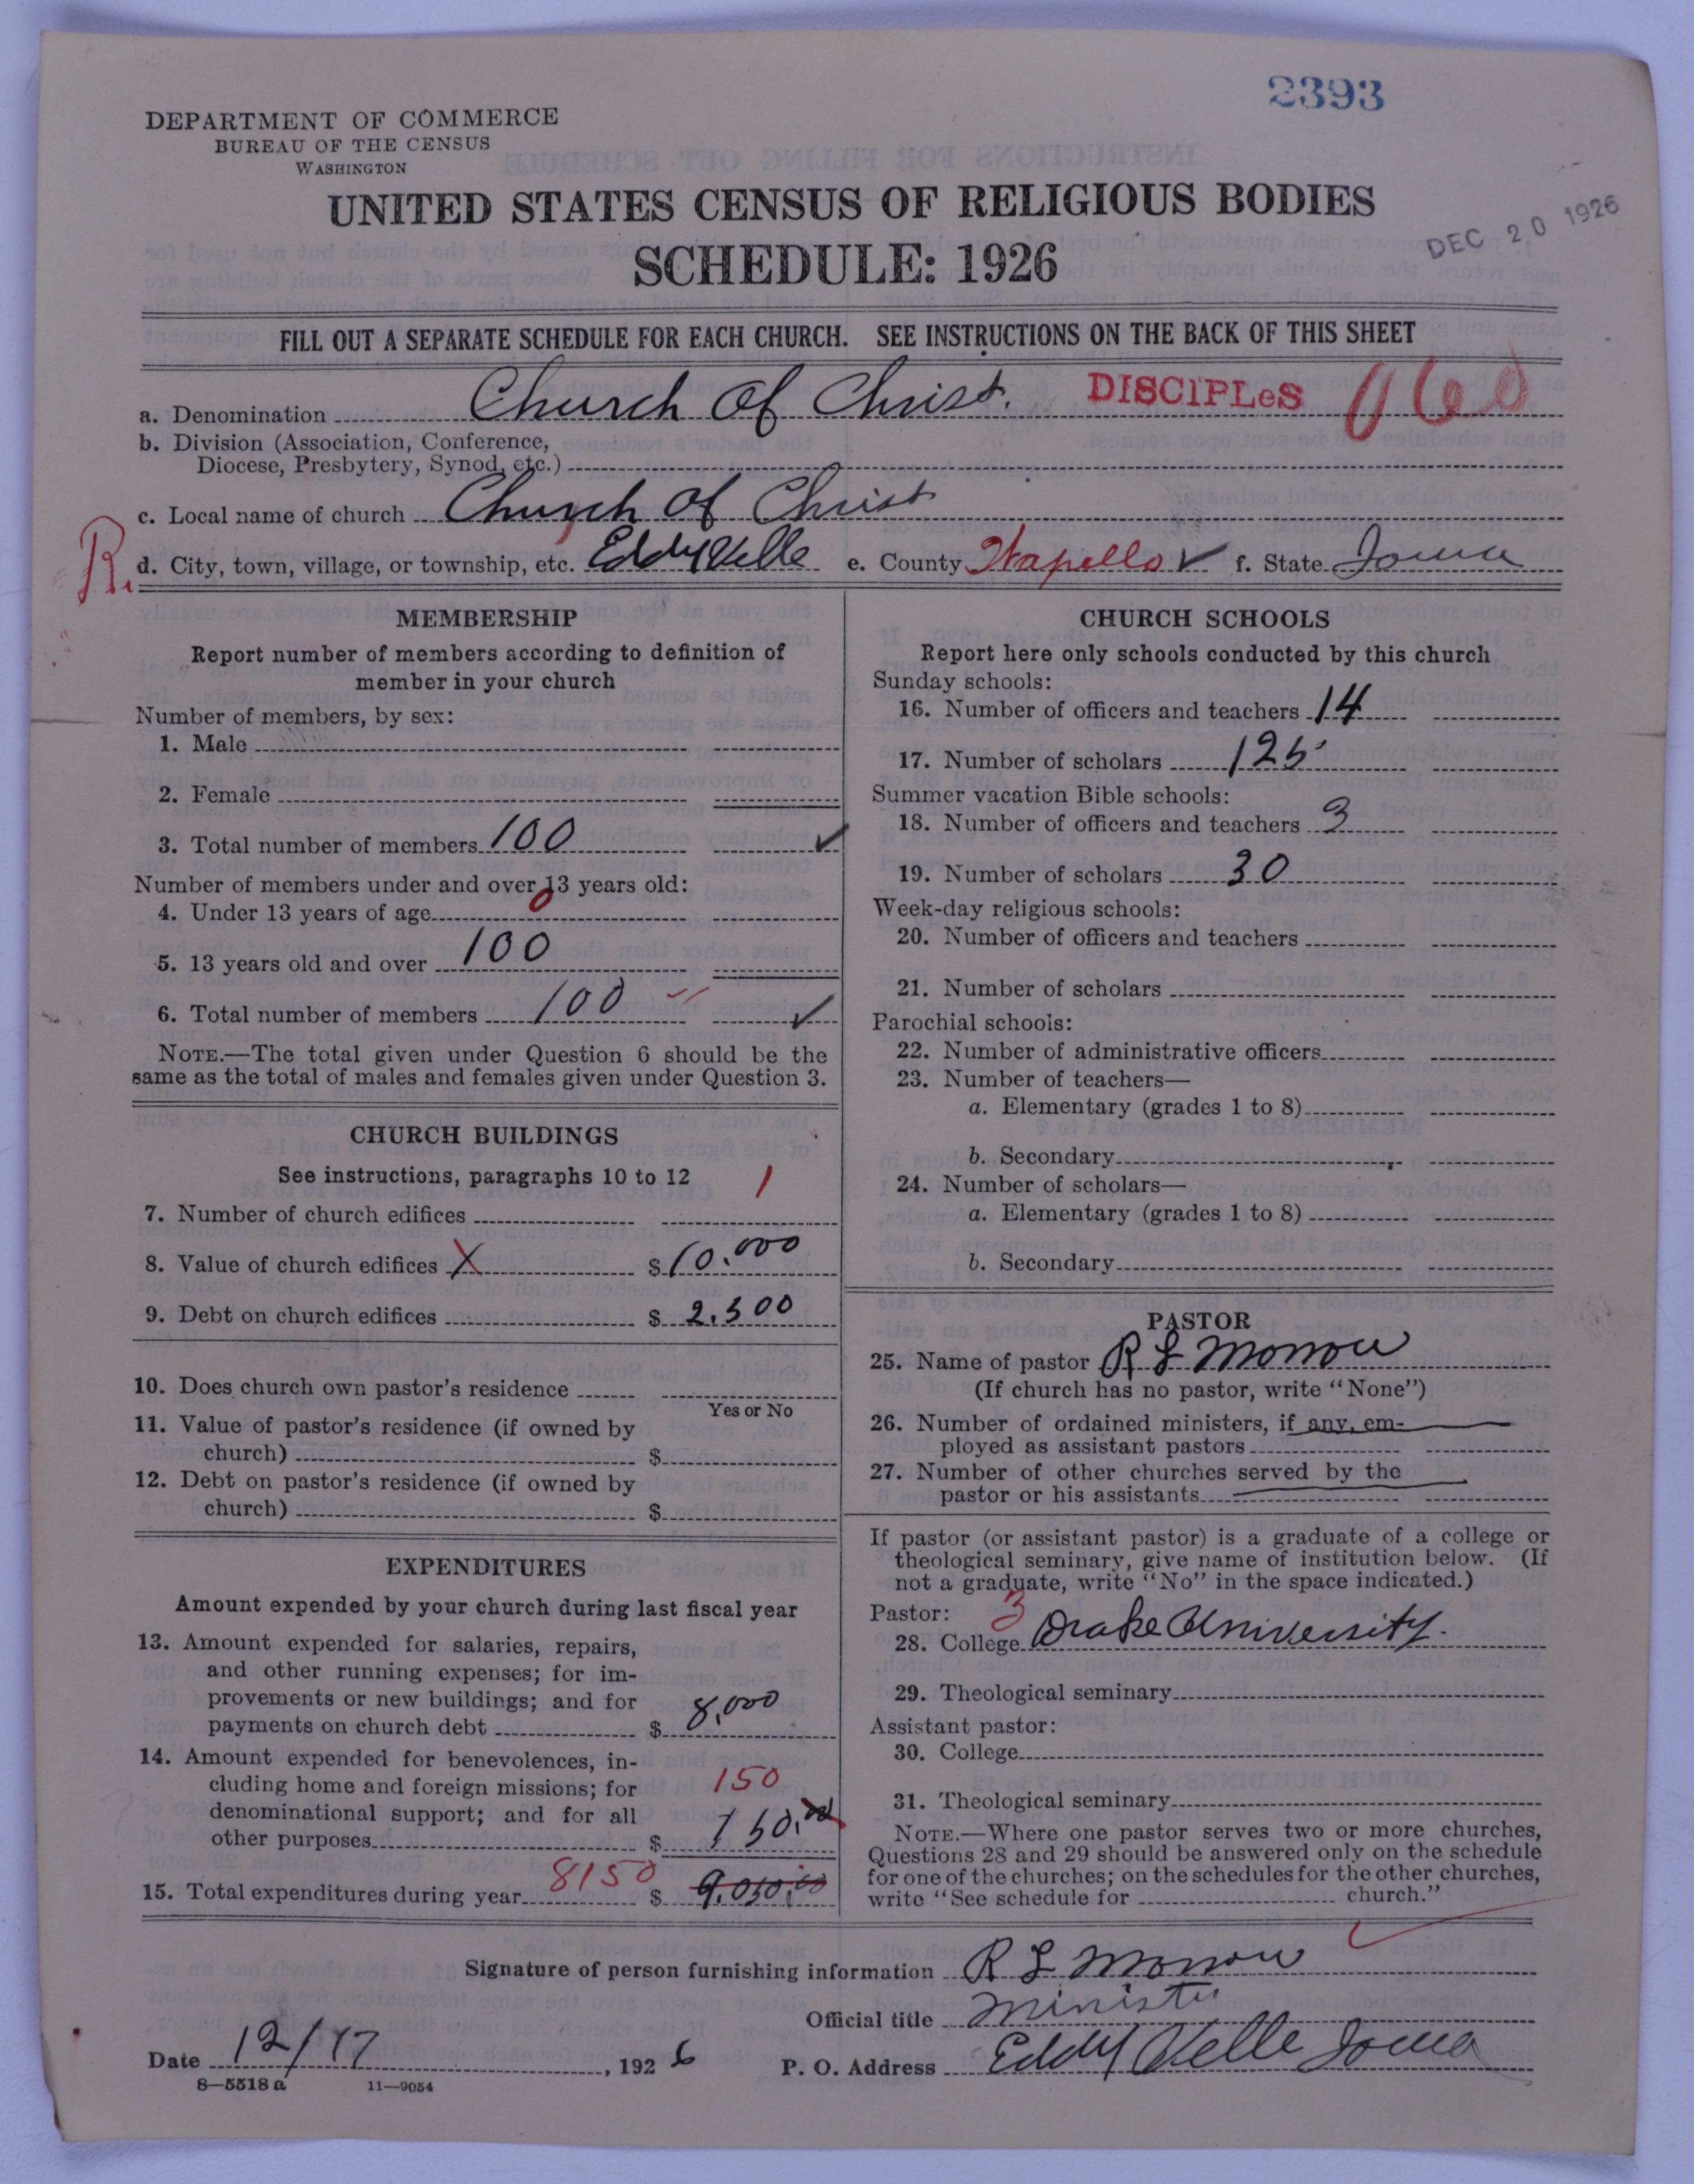 2393
DEPARTMENT OF COMMERCE
BUREAU OF THE CENSUS
WASHINGTON
UNITED STATES CENSUS OF RELIGIOUS BODIES
SCHEDULE: 1926
DEC 20 1926
FILL OUT A SEPARATE SCHEDULE FOR EACH CHURCH. SEE INSTRUCTIONS ON THE BACK OF THIS SHEET
a. Denomination Church Of Christ. DISCIPLeS 060
b. Division (Association, Conference,
Diocese, Presbytery, Synod, etc.)
c. Local name of church Church Of Christ
R. d. City, town, village, or township, etc. EddyVelle e. County Wapello ✓ f. State Iowa
MEMBERSHIP
Report number of members according to definition of
member in your church
Number of members, by sex:
1. Male
2. Female
3. Total number of members 100 ✓
Number of members under and over 13 years old:
4. Under 13 years of age 0
5. 13 years old and over 100
6. Total number of members 100 ✓
NOTE.—The total given under Question 6 should be the
same as the total of males and females given under Question 3.
CHURCH BUILDINGS
See instructions, paragraphs 10 to 12
7. Number of church edifices 1
8. Value of church edifices X $ 10.000
9. Debt on church edifices $ 2.500
10. Does church own pastor's residence
Yes or No
11. Value of pastor's residence (if owned by
church) $
12. Debt on pastor's residence (if owned by
church) $
EXPENDITURES
Amount expended by your church during last fiscal year
13. Amount expended for salaries, repairs,
and other running expenses; for im-
provements or new buildings; and for
payments on church debt $ 8,000
14. Amount expended for benevolences, in-
cluding home and foreign missions; for 150
denominational support; and for all
other purposes $ 150.00
15. Total expenditures during year 8150 $ 9.050.00
CHURCH SCHOOLS
Report here only schools conducted by this church
Sunday schools:
16. Number of officers and teachers 14
17. Number of scholars 125
Summer vacation Bible schools:
18. Number of officers and teachers 3
19. Number of scholars 30
Week-day religious schools:
20. Number of officers and teachers
21. Number of scholars
Parochial schools:
22. Number of administrative officers
23. Number of teachers—
a. Elementary (grades 1 to 8)
b. Secondary
24. Number of scholars—
a. Elementary (grades 1 to 8)
b. Secondary
PASTOR
25. Name of pastor R L Morrow
(If church has no pastor, write "None")
26. Number of ordained ministers, if any, em-
ployed as assistant pastors
27. Number of other churches served by the
pastor or his assistants
If pastor (or assistant pastor) is a graduate of a college or
theological seminary, give name of institution below. (If
not a graduate, write "No" in the space indicated.)
Pastor: 3
28. College Drake University.
29. Theological seminary
Assistant pastor:
30. College
31. Theological seminary
NOTE.—Where one pastor serves two or more churches,
Questions 28 and 29 should be answered only on the schedule
for one of the churches; on the schedules for the other churches,
write "See schedule for church."
Signature of person furnishing information R L Morrow
Official title Minister
Date 12/17, 1926 P. O. Address EddyVelle Iowa
8—5518 a 11—9054